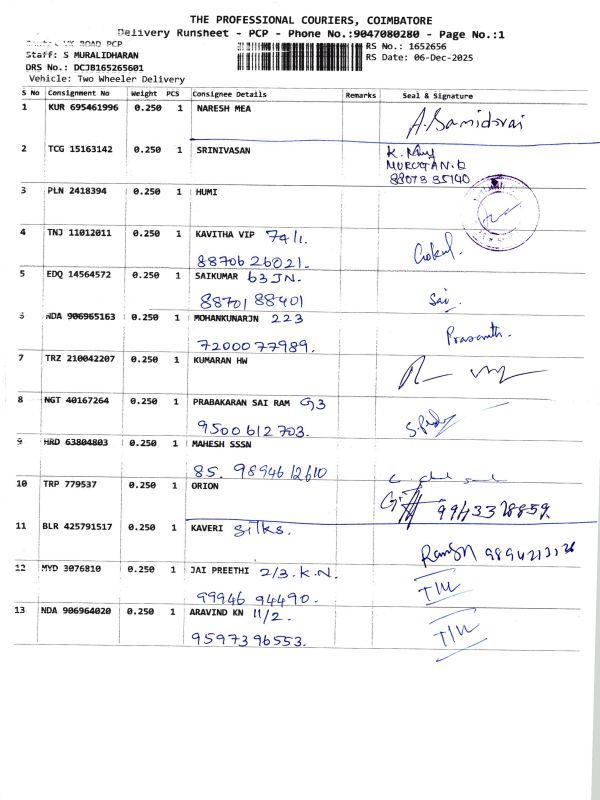 THE PROFESSIONAL COURIERS, COIMBATORE
Delivery Runsheet - PCP - Phone No.:9047080280 - Page No.:1
ROAD PCP
Staff: S MURALIDHARAN
DRS No.: DCJB165265601
Vehicle: Two Wheeler Delivery
RS No.: 1652656
RS Date: 06-Dec-2025
S No Consignment No Weight PCS Consignee Details Remarks Seal & Signature
1 KUR 695461996 0.250 1 NARESH MEA
2 TCG 15163142 0.250 1 SRINIVASAN K.
MURUGAN.D
88073 35140
3 PLN 2418394 0.250 1 HUMI
4 TNJ 11012011 0.250 1 KAVITHA VIP 74/1.
8870626021. Gokul.
5 EDQ 14564572 0.250 1 SAIKUMAR 63 JN.
88701 88401 Sai
6 NDA 906965163 0.250 1 MOHANKUNARJN 223
7200077989. Prasanth.
7 TRZ 210042207 0.250 1 KUMARAN HW
8 NGT 40167264 0.250 1 PRABAKARAN SAI RAM G3
9500612703.
9 HRD 63804803 0.250 1 MAHESH SSSN
85. 9894612610
10 TRP 779537 0.250 1 ORION
9943328859.
11 BLR 425791517 0.250 1 KAVERI Silks.
12 MYD 3076810 0.250 1 JAI PREETHI 2/3. K.N.
99946 94490.
13 NDA 906964020 0.250 1 ARAVIND KN 11/2.
9597396553.